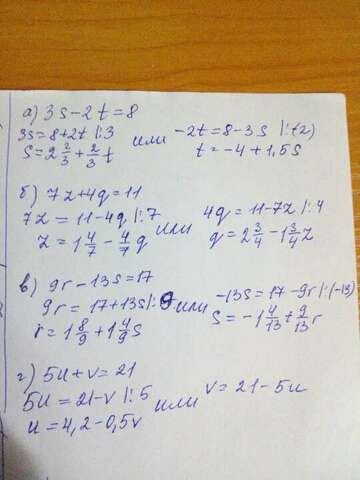 а) 3s-2t=8
3s=8+2t |:3 или -2t=8-3s |:(-2)
s=2 2/3+2/3 t t=-4+1,5s
б) 7z+4q=11
7z=11-4q |:7 или 4q=11-7z |:4
z=1 4/7-4/7 q q=2 3/4-1 3/4 z
в) 9r-13s=17
9r=17+13s |:9 или -13s=17-9r |:(-13)
r=1 8/9+1 4/9 s s=-1 4/13+9/13 r
г) 5u+v=21
5u=21-v |:5 или v=21-5u
u=4,2-0,5v